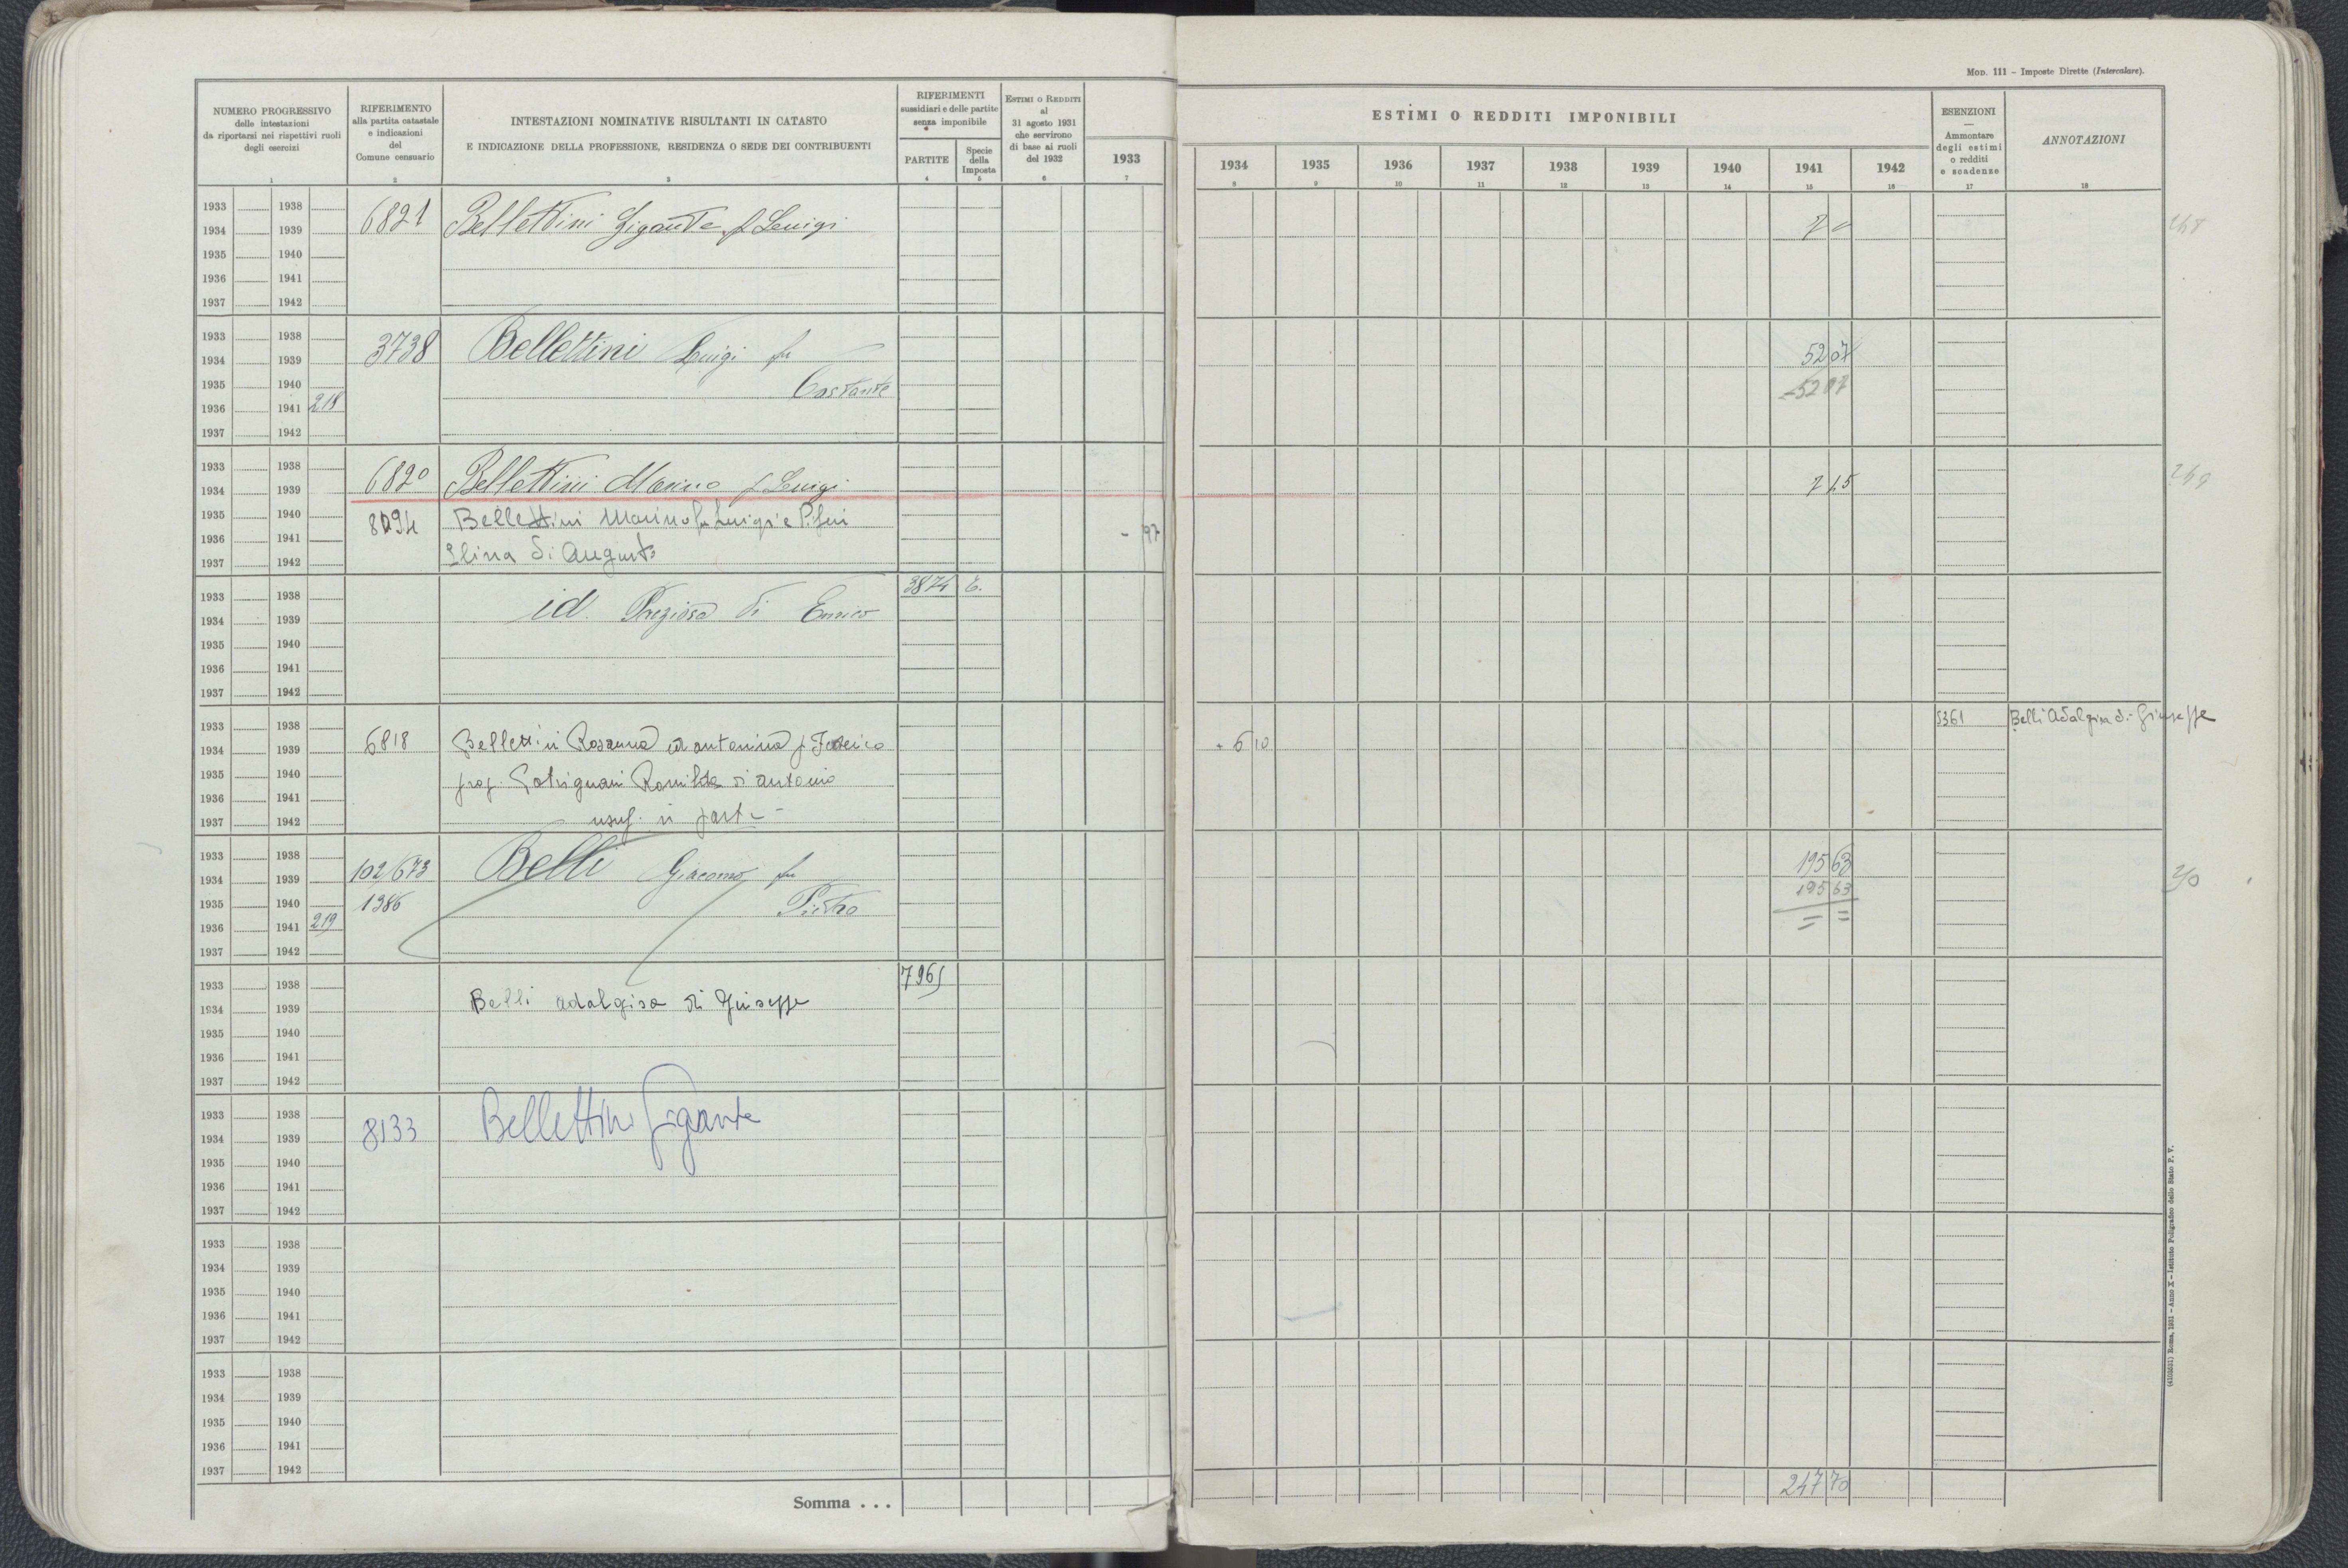 Mod. 111 – Imposte Dirette (Intercalare).
NUMERO PROGRESSIVO
delle intestazioni
da riportarsi nei rispettivi ruoli
degli esercizi
1
RIFERIMENTO
alla partita catastale
e indicazioni
del
Comune censuario
2
INTESTAZIONI NOMINATIVE RISULTANTI IN CATASTO
E INDICAZIONE DELLA PROFESSIONE, RESIDENZA O SEDE DEI CONTRIBUENTI
3
RIFERIMENTI
sussidiari e delle partite
senza imponibile
PARTITE
4
Specie
della
Imposta
5
Estimi o Redditi
al
31 agosto 1931
che servirono
di base ai ruoli
del 1932
6
1933
7
ESTIMI O REDDITI IMPONIBILI
1934 1935 1936 1937 1938 1939 1940 1941 1942
8 9 10 11 12 13 14 15 16
ESENZIONI
—
Ammontare
degli estimi
o redditi
e scadenze
17
ANNOTAZIONI
18
1933 1938
1934 1939 6821 Bellettini Gigante f Luigi
1935 1940
1936 1941
1937 1942
1933 1938
1934 1939 3738 Bellettini Luigi fu 52 07
1935 1940 Costante 52 07
1936 1941 218
1937 1942
1933 1938
1934 1939 6820 Bellettini Marino f Luigi
1935 1940 8094 Bellettini Marino fu Luigi e
1936 1941 - 97
1937 1942 di Augusto
1933 1938 3874
1934 1939 id. Preziosa di Enrico
1935 1940
1936 1941
1937 1942
1933 1938 5361 Belli Adalgisa di Giuseppe
1934 1939 6818 Bellettini Rosanna ed antonina f Federico 6 10
1935 1940 prop. Romilda di antonio
1936 1941
1937 1942 usuf. in parte
1933 1938 195 63
1934 1939 102/673 Belli Giacomo fu 195 63 250
1935 1940 1386 Pietro = =
1936 1941 219
1937 1942
1933 1938 7965
1934 1939 Belli adalgisa di Giuseppe
1935 1940
1936 1941
1937 1942
1933 1938
1934 1939 8133 Bellettini Gigante
1935 1940
1936 1941
1937 1942
1933 1938
1934 1939
1935 1940
1936 1941
1937 1942
1933 1938
1934 1939
1935 1940
1936 1941
1937 1942
Somma . . . 247 70
(4105631) Roma, 1931 – Anno X – Istituto Poligrafico dello Stato P. V.